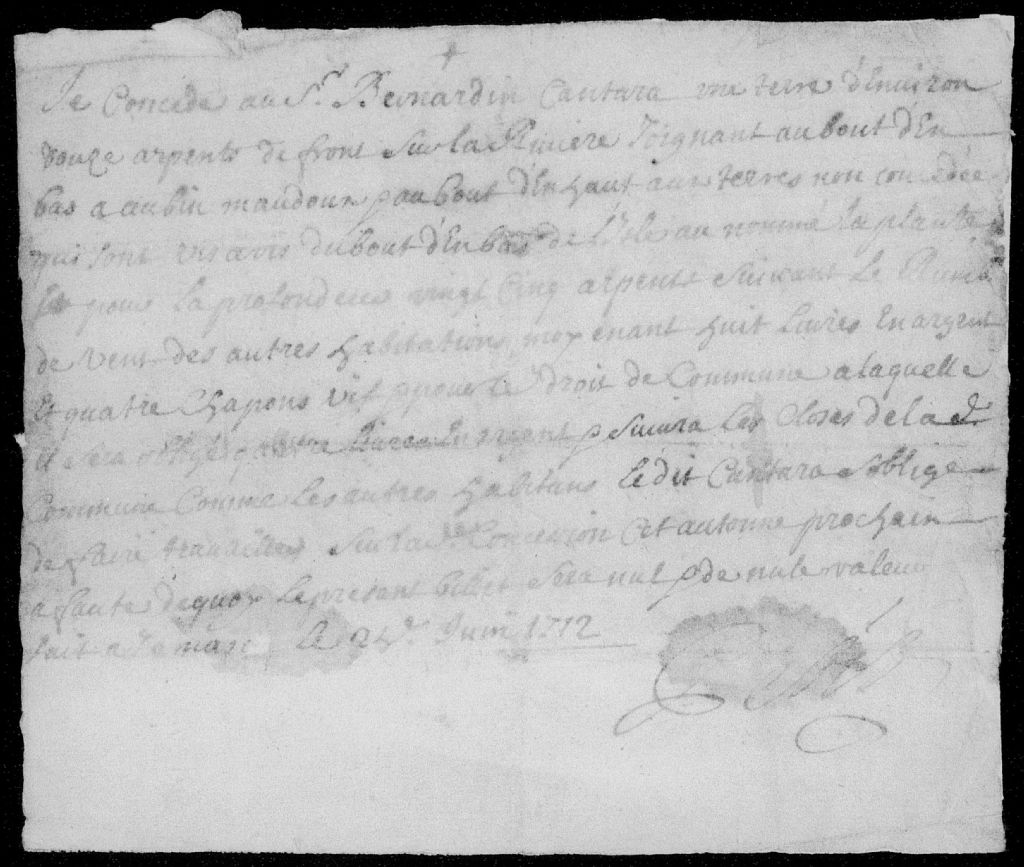 Je Concede au Sr. Bernardin Cantara une terre d'Environ
douze arpents de front sur la Riviere Joignant au bout d'En
bas a aubin maudoux p au bout d'En haut aux terres non concedée
qui sont vis avis du bout d'En bas de L'Isle au nommé La plante
Et pour La profondeur vingt Cinq arpents suivant Le Rumb
de vent des autres habitations, moyenant huit Livres En argent
Et quatre Chapons vif p pour le droit de Commune a laquelle
il sera obligé quatre Livres En argent p suivra Les Closes de la de.
Commune Comme Les autres habitans Ledit Cantara soblige
de faire travailler sur lade. Concession Cet automne prochain
a faute dequoy Le present billet sera nul p de nule valeur
fait a Le 24e. Juin 1712